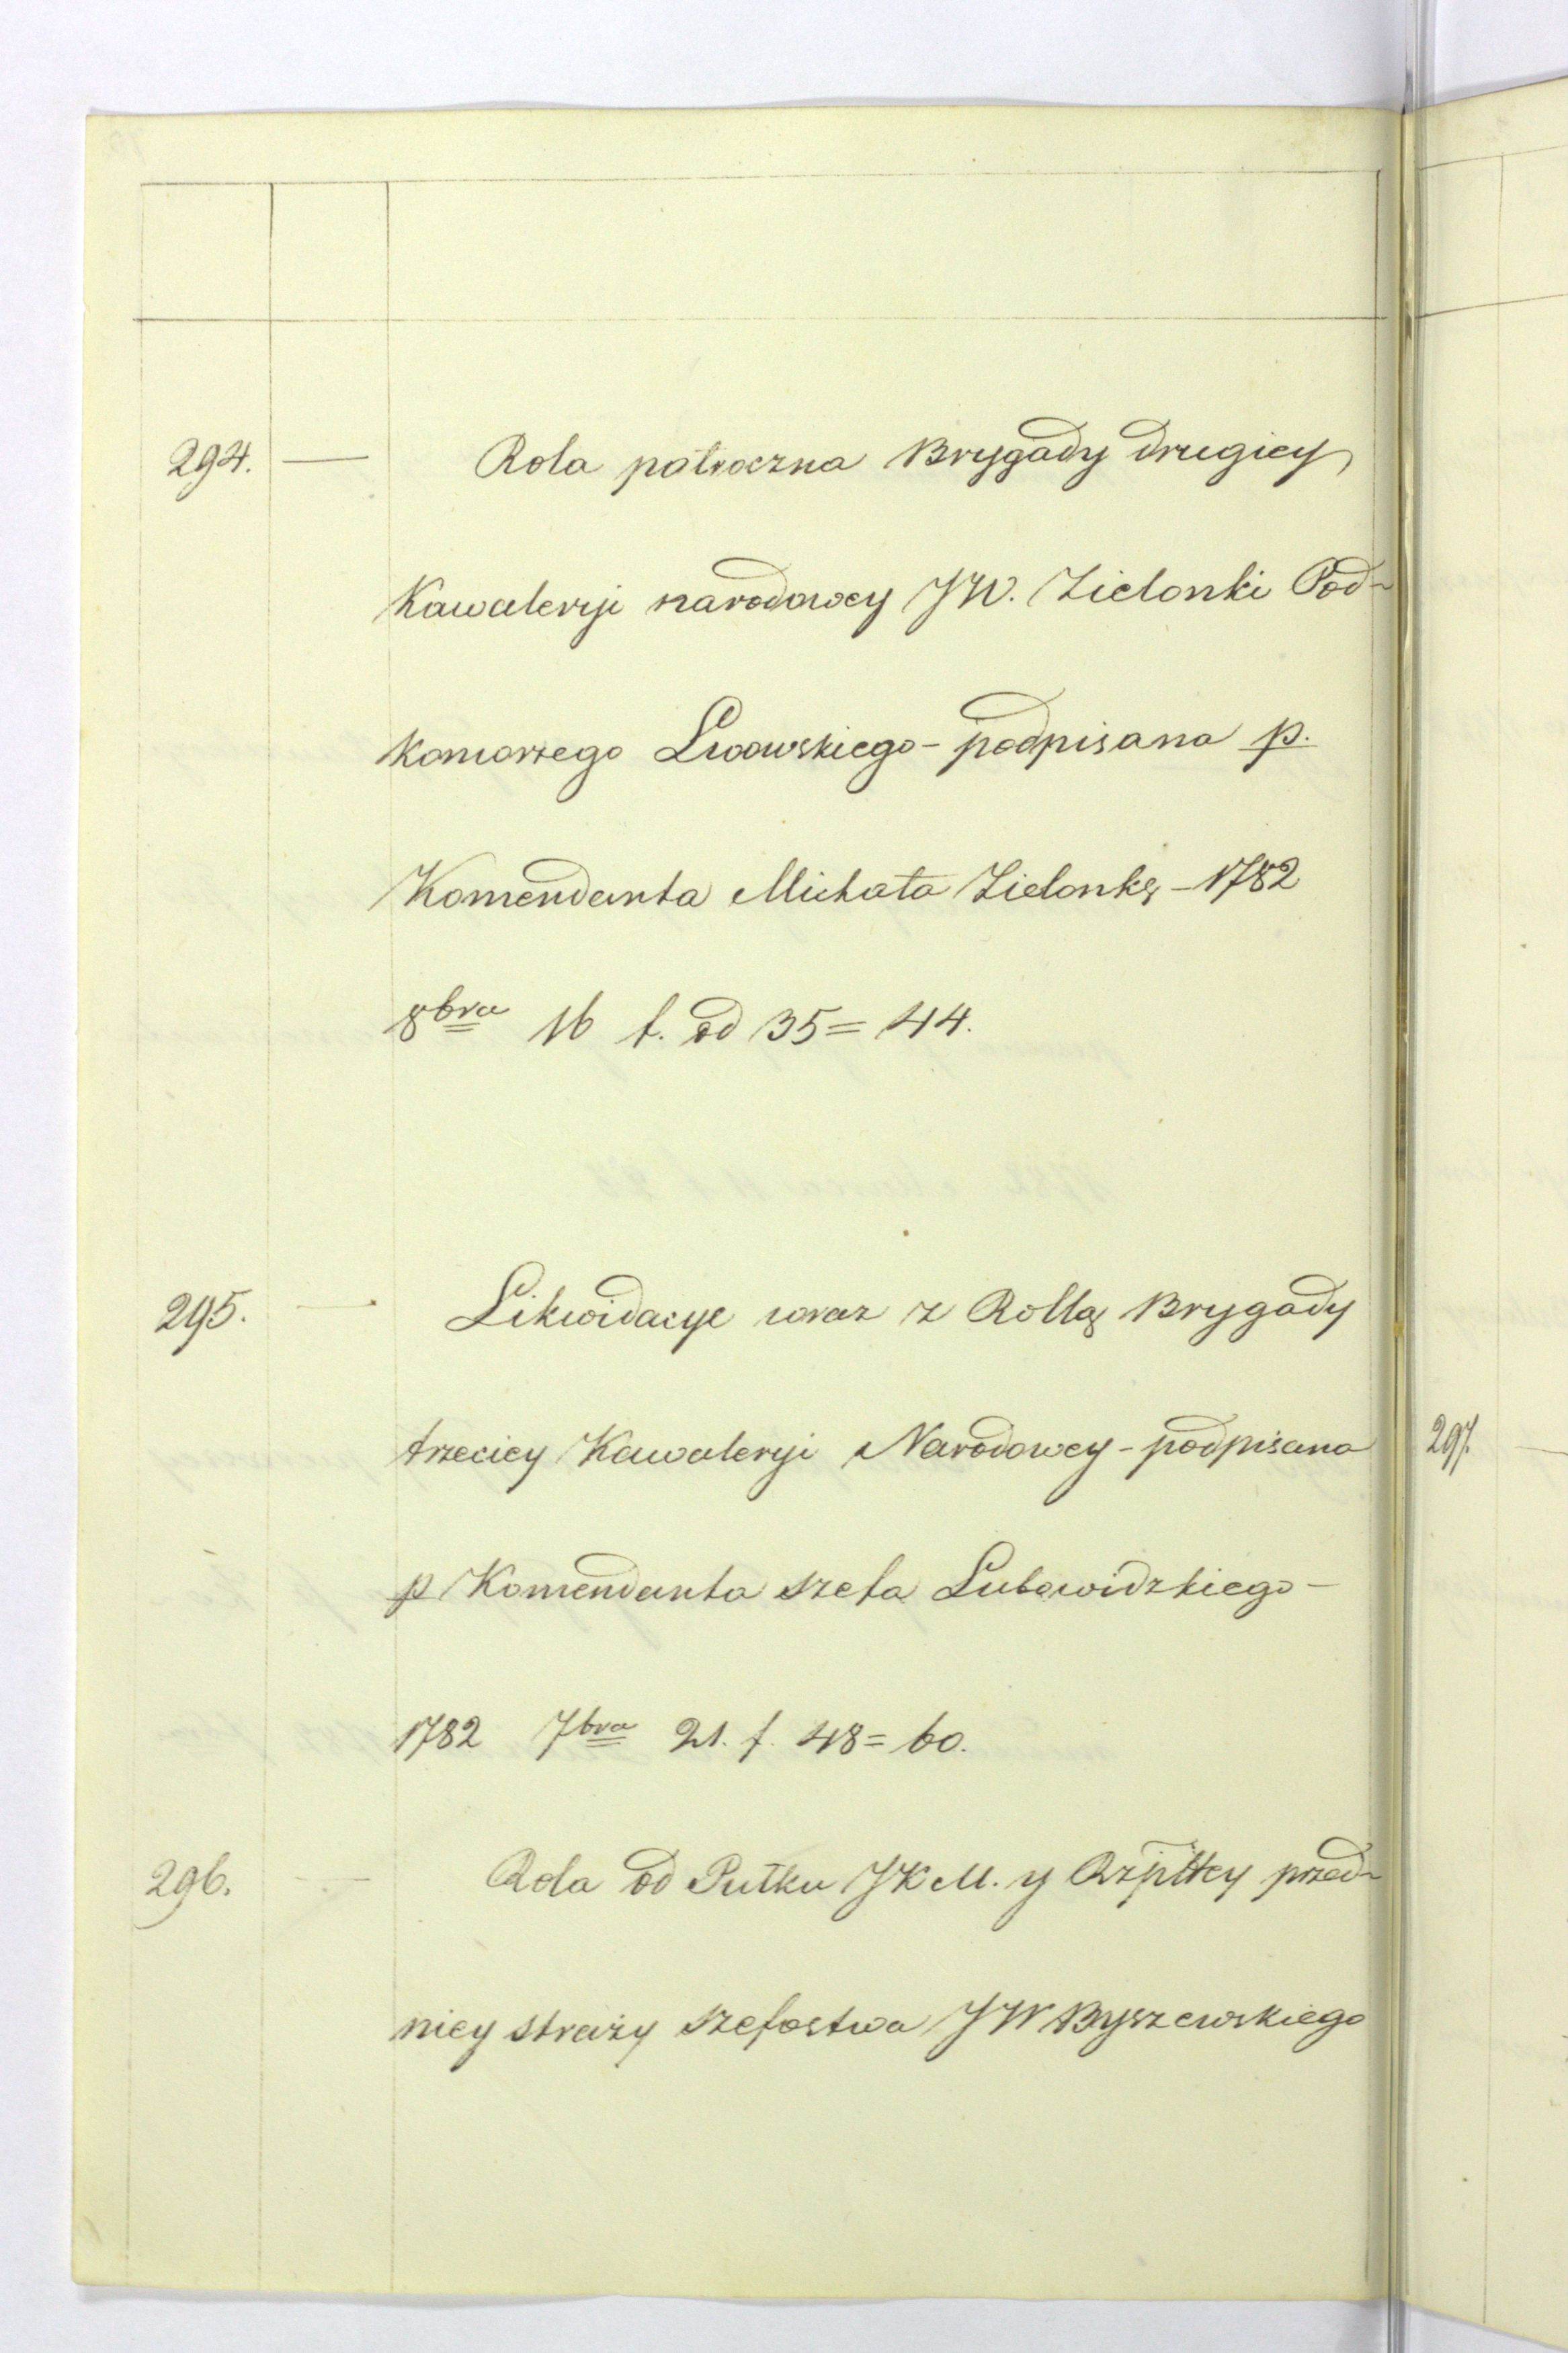 294. — Rola pułroczna Brygady drugiey
Kawaleryi narodowey JW. Zielonki Pod-
komorzego Lwowskiego - podpisana p.
Komendanta Michała Zielonkę - 1782
8bra 16 f. od 35 = 44.
295. — Likwidacye wraz z Rollą Brygady
trzeciey Kawaleryi Narodowey - podpisana
p Komendanta szefa Lubowidzkiego -
1782 7bra 21. f. 48 = 60.
296. — Rola od Pułku JKM. y Rzpltey przed-
niey straży szefostwa JW Byszewskiego
297. —